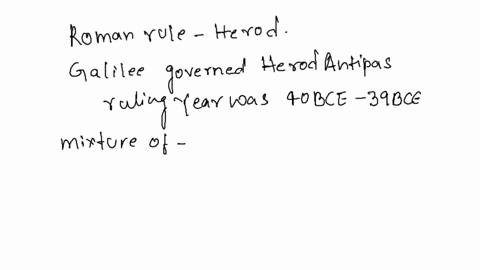 Roman rule - Herod.
Galilee governed Herod Antipas
ruling year was 40BCE - 39BCE
mixture of -